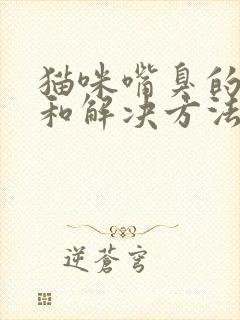 猫咪嘴臭的
和解决方法
逆苍穹